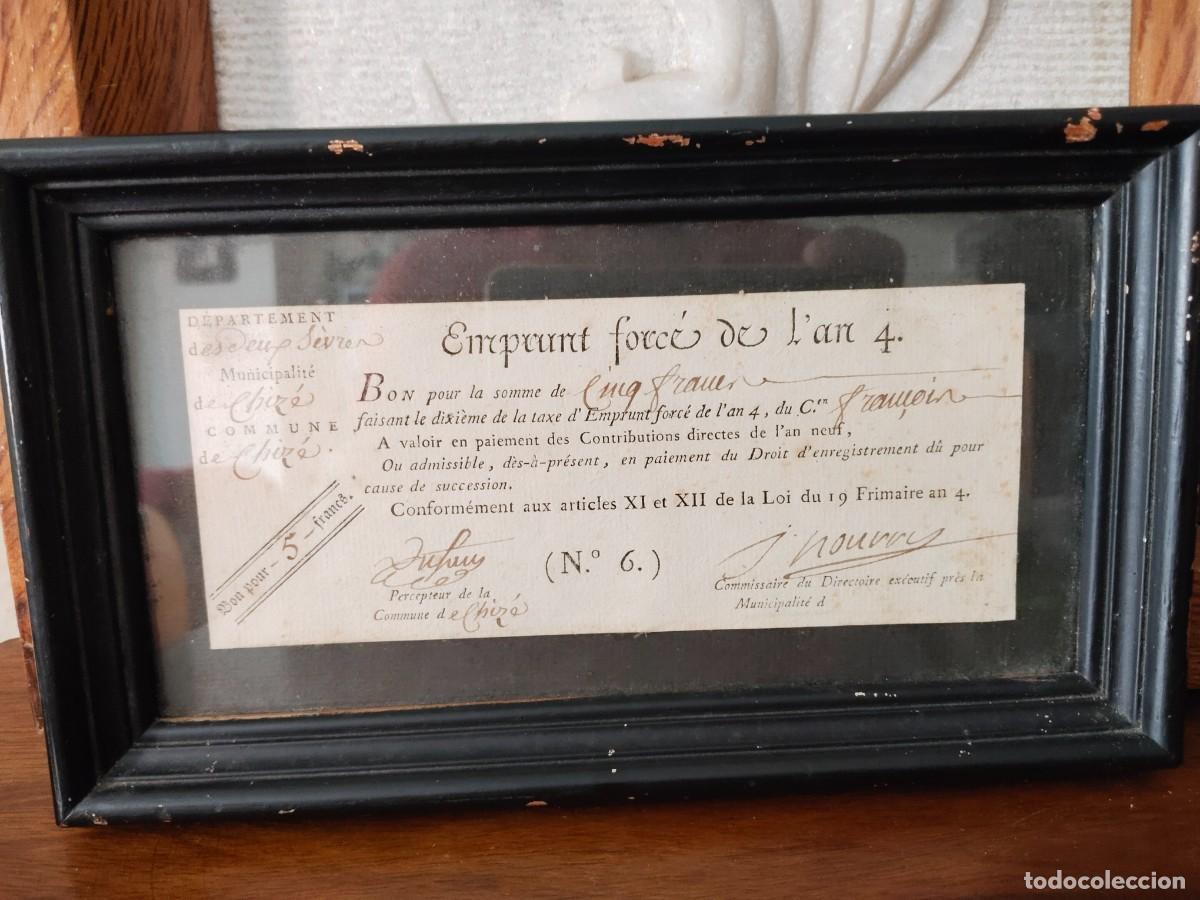 DÉPARTEMENT
des deux Sèvres
Municipalité
de Chizé
COMMUNE
de Chizé.
Bon pour - 5 - francs.
Emprunt forcé de l'an 4.
BON pour la somme de Cinq francs
faisant le dixième de la taxe d'Emprunt forcé de l'an 4, du C.en françois
A valoir en paiement des Contributions directes de l'an neuf,
Ou admissible, dès-à-présent, en paiement du Droit d'enregistrement dû pour
cause de succession.
Conformément aux articles XI et XII de la Loi du 19 Frimaire an 4.
(N.o 6.)
Percepteur de la
Commune de Chizé
Commissaire du Directoire exécutif près la
Municipalité d
todocoleccion